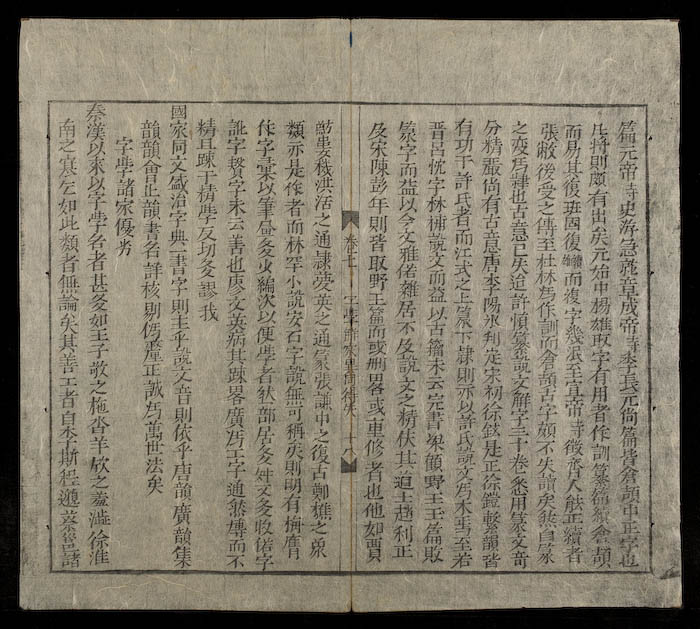 篇元帝時史游急就章成帝時李長元尚篇皆倉頡中正字也
凡將則頗有出矣元始中楊雄取字有用者作訓纂篇續倉頡
而易其復班固復續楊雄而復字幾泯至宣帝時徵齊人能正讀者
張敞從受之傳至杜林為作訓而倉頡古字頗不失讀矣然自篆
之變為隸也古意已失迨許慎纂說文解字三十卷悉用篆文音
分精嚴尚有古意唐李陽冰刋定宋初徐鉉是正徐鍇繫韻皆
有功于許氏者而江式之上篆下隸則亦以許氏說文為本焉至若
晉呂忱字林補說文而益以古籀未云完書梁顧野王玉篇敗
篆字而益以今文雅俗雜居不及說文之精伕其道土趙利正
及宋陳彭年則皆取野王篇而或刪畧或重修者也他如賈
卷七 字學
魴婁機洪适之通隸夢英之通篆張謙中之復古鄭樵之象
類亦是作者而林罕小說安石字說無可稱矣則明有梅膺
祚字彙以筆畫多少編次以便學者然部居多舛文多收俗字
訛字贅字未云善也庾文英病其踈畧廣為正字通然慱而不
精且踈于精學反切多謬我
國家同文盛治字典一書字則主乎說文音則依乎唐韻廣韻集
韻韻會正韻書名詳核則偽釐正誠為萬世法矣
字學諸家優劣
秦漢以來以字學名者甚多如王子敬之拖沓羊欣之羞澁徐淮
南之寒乞如此類者無論矣其善工者自李斯程邈蔡邕諸